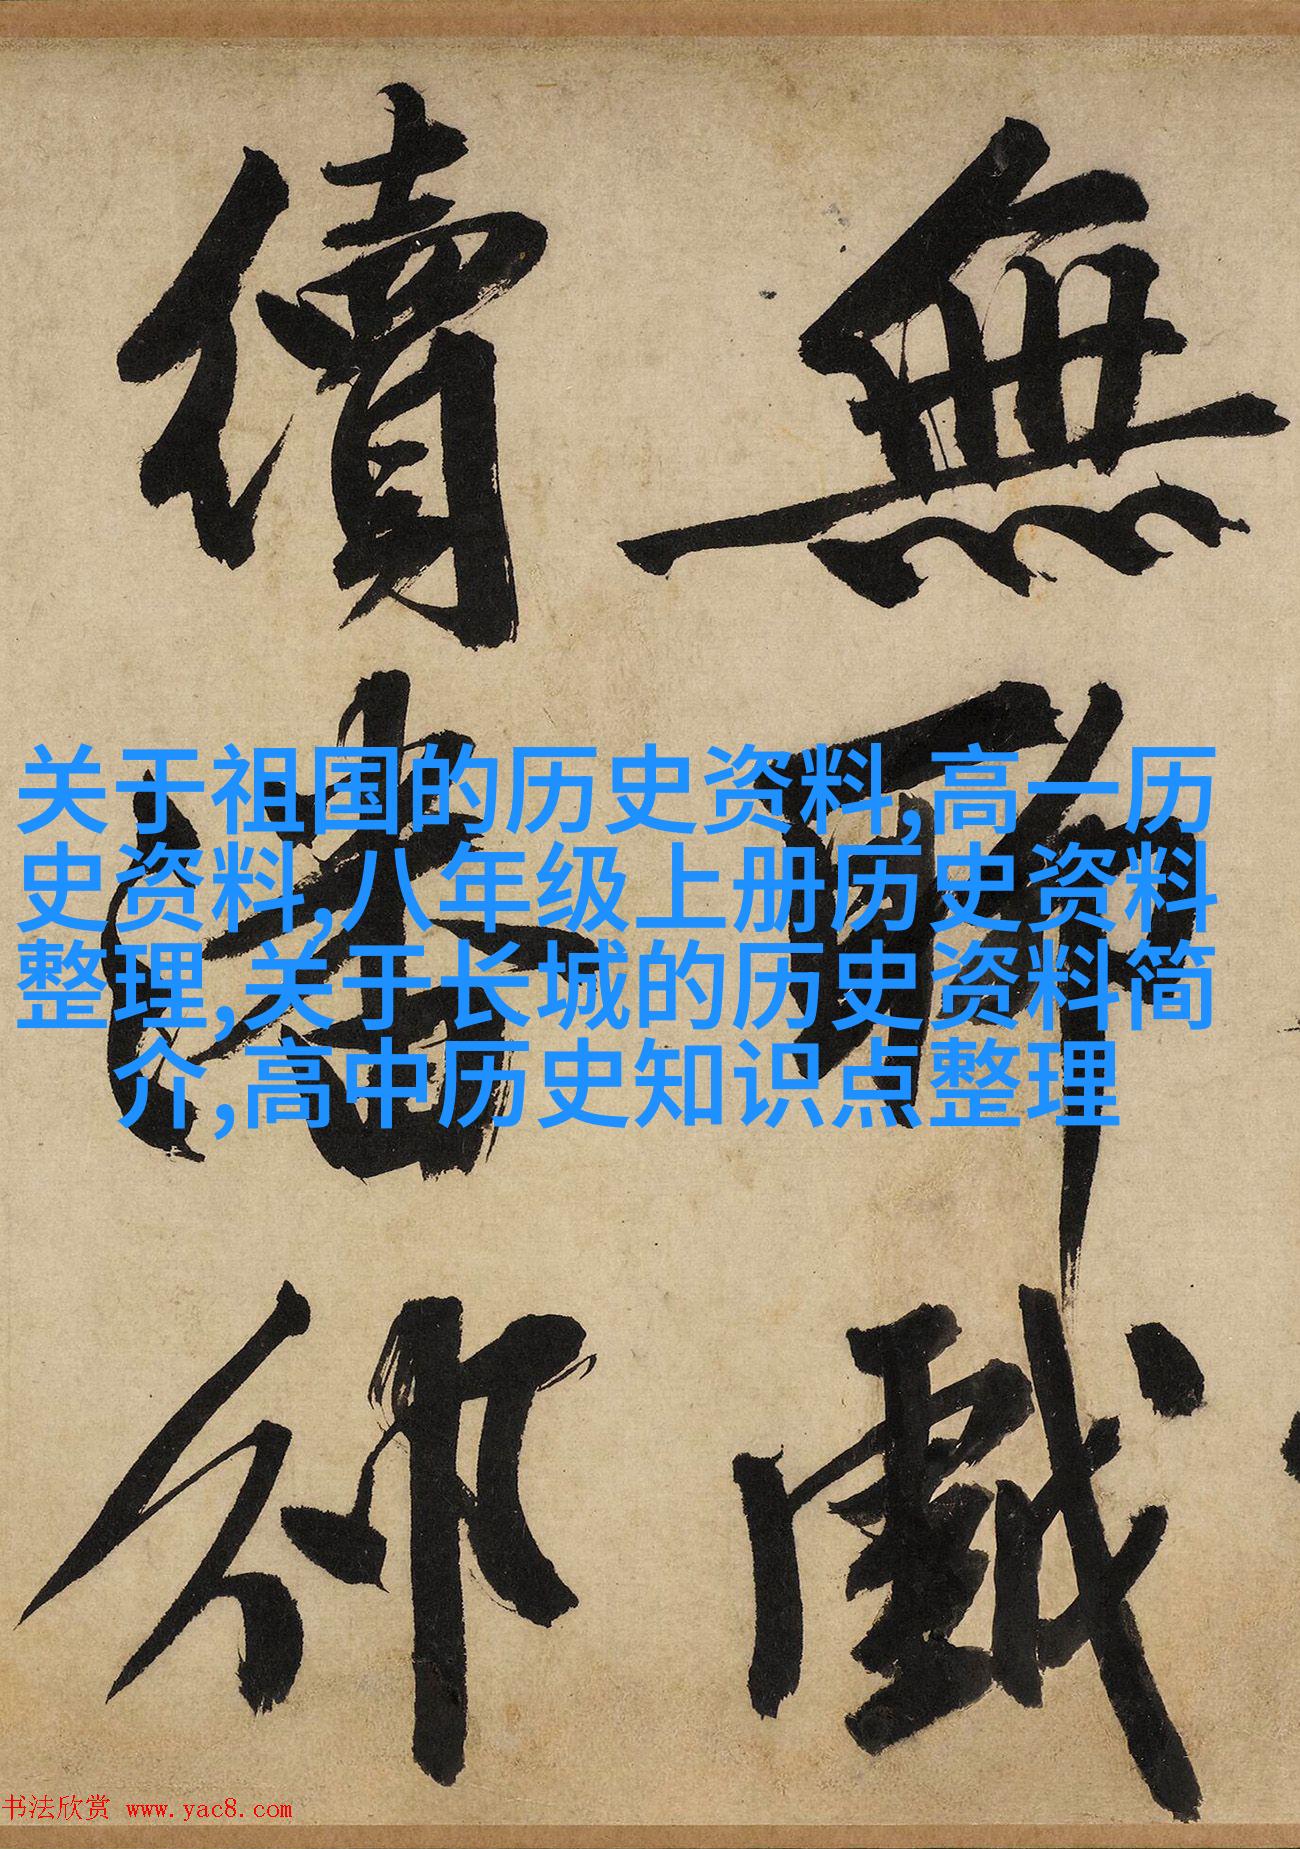 無所戲
續書卻
关于祖国的历史资料,高一历
史资料,八年级上册历史资料
整理,关于长城的历史资料简
介,高中历史知识点整理
书法欣赏 www.yac8.com